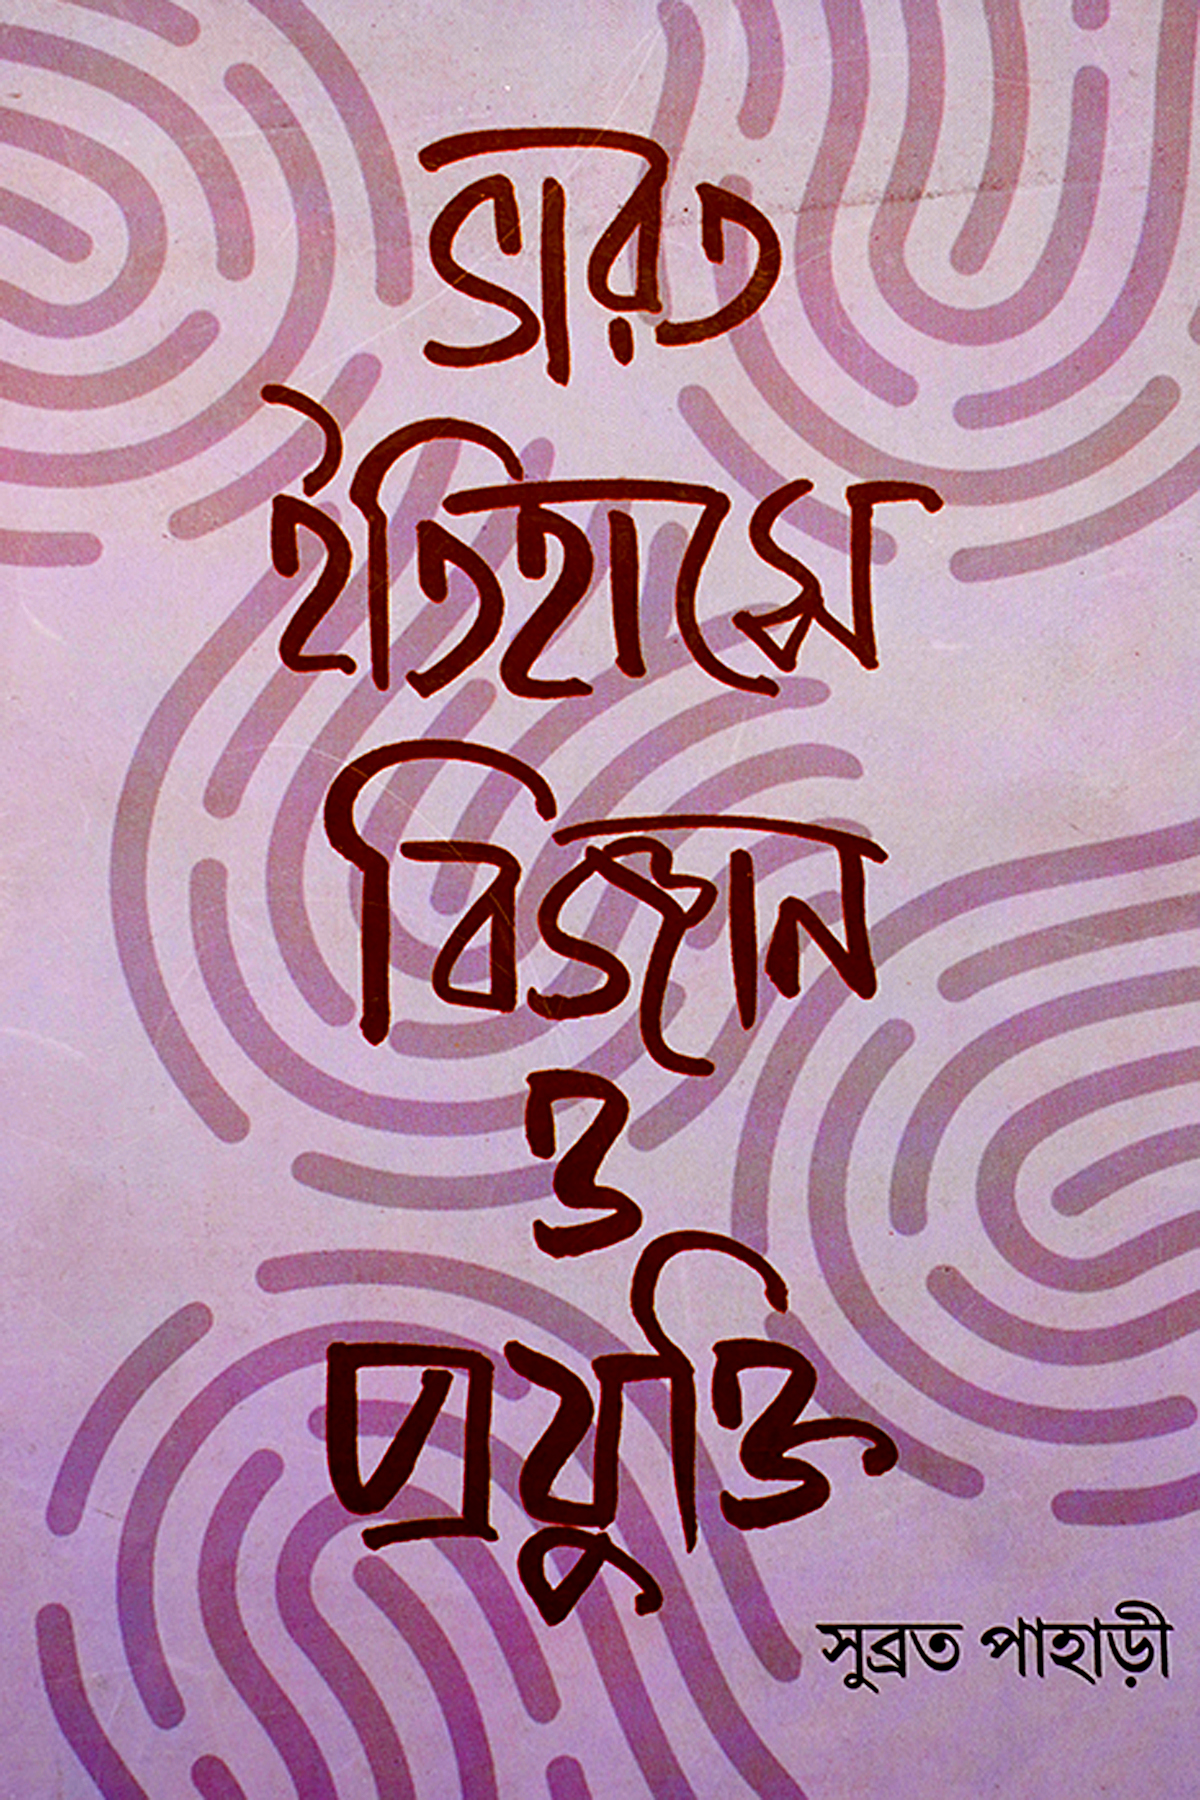 ভারত
ইতিহাসে
বিজ্ঞান
ও
প্রযুক্তি
সুব্রত পাহাড়ী